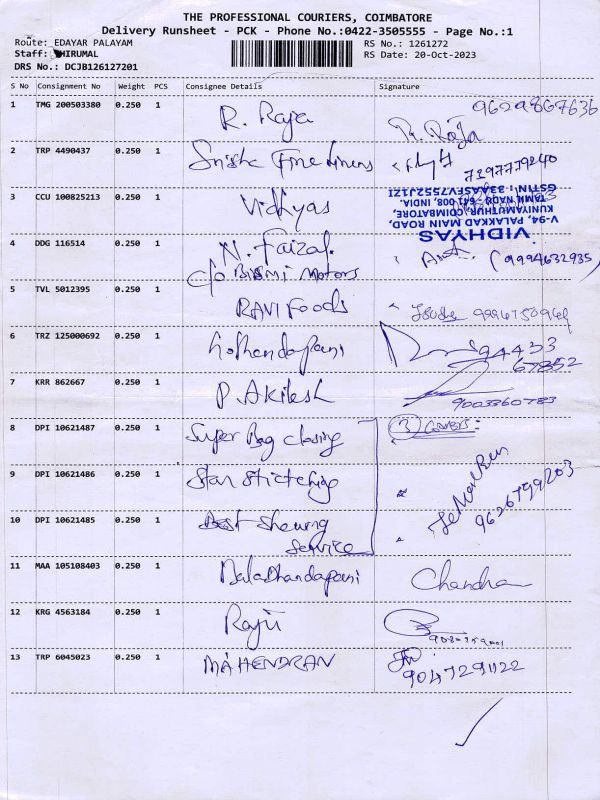 THE PROFESSIONAL COURIERS, COIMBATORE
Delivery Runsheet - PCK - Phone No.:0422-3505555 - Page No.:1
Route: EDAYAR PALAYAM
RS No.: 1261272
Staff: THIRUMAL
RS Date: 20-Oct-2023
DRS No.: DCJB126127201
S No Consignment No Weight PCS Consignee Details Signature
1 TMG 200503380 0.250 1 R. Raja 9629867636
R. Raja
2 TRP 4490437 0.250 1 Fine linens 7197779240
3 CCU 100825213 0.250 1 Vidhyas
VIDHYAS
V-94, PALAKKAD MAIN ROAD,
KUNIYAMUTHUR, COIMBATORE,
TAMIL NADU - 641 008, INDIA.
GSTIN : 33AASFV7552J1ZI
4 DDG 116514 0.250 1 N. Faizal (9994632935)
C/o Bismi Motors
5 TVL 5012395 0.250 1 RAVI Foods
6 TRZ 125000692 0.250 1 94433
67852
7 KRR 862667 0.250 1 P. Akilesh 9003360783
8 DPI 10621487 0.250 1 Super Bag closing (3) Covers:
9 DPI 10621486 0.250 1 Star Sticteching
9626799203
10 DPI 10621485 0.250 1 Best Shewing
Service
11 MAA 105108403 0.250 1 BalaDhandapani Chandra
12 KRG 4563184 0.250 1 Raju
13 TRP 6045023 0.250 1 MAHENDRAN 9047291122